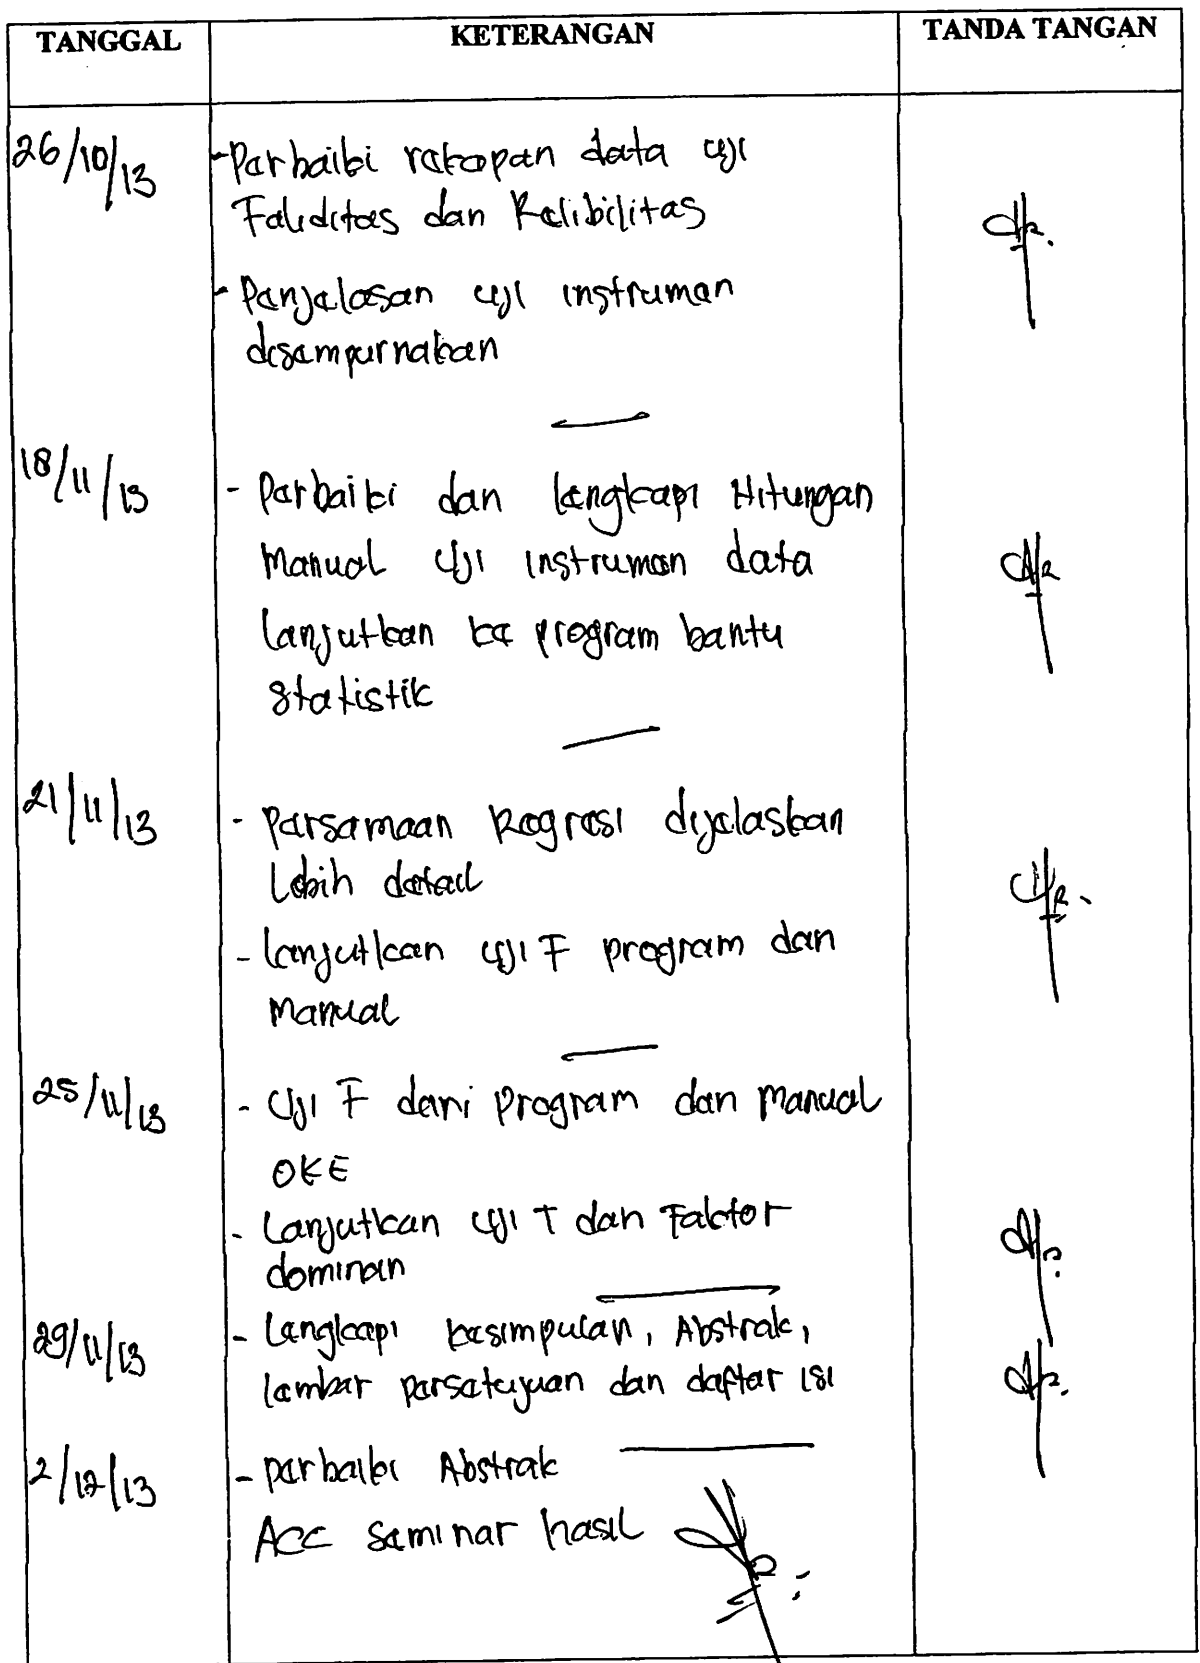 TANGGAL KETERANGAN TANDA TANGAN
26/10/13 - Perbaiki rekapan data uji
Faliditas dan Relibilitas
- Penjelasan uji instrumen
disempurnakan
18/11/13 - Perbaiki dan lengkapi Hitungan
Manual Uji instrumen data
lanjutkan ke program bantu
statistik
21/11/13 - Persamaan Regresi dijelaskan
Lebih detail
- lanjutkan uji F program dan
Manual
25/11/13 - Uji F dari program dan manual
OKE
- Lanjutkan uji T dan Faktor
dominan
29/11/13 - Lengkapi kesimpulan, Abstrak,
lembar persetujuan dan daftar isi
2/12/13 - perbaiki Abstrak
ACC seminar hasil